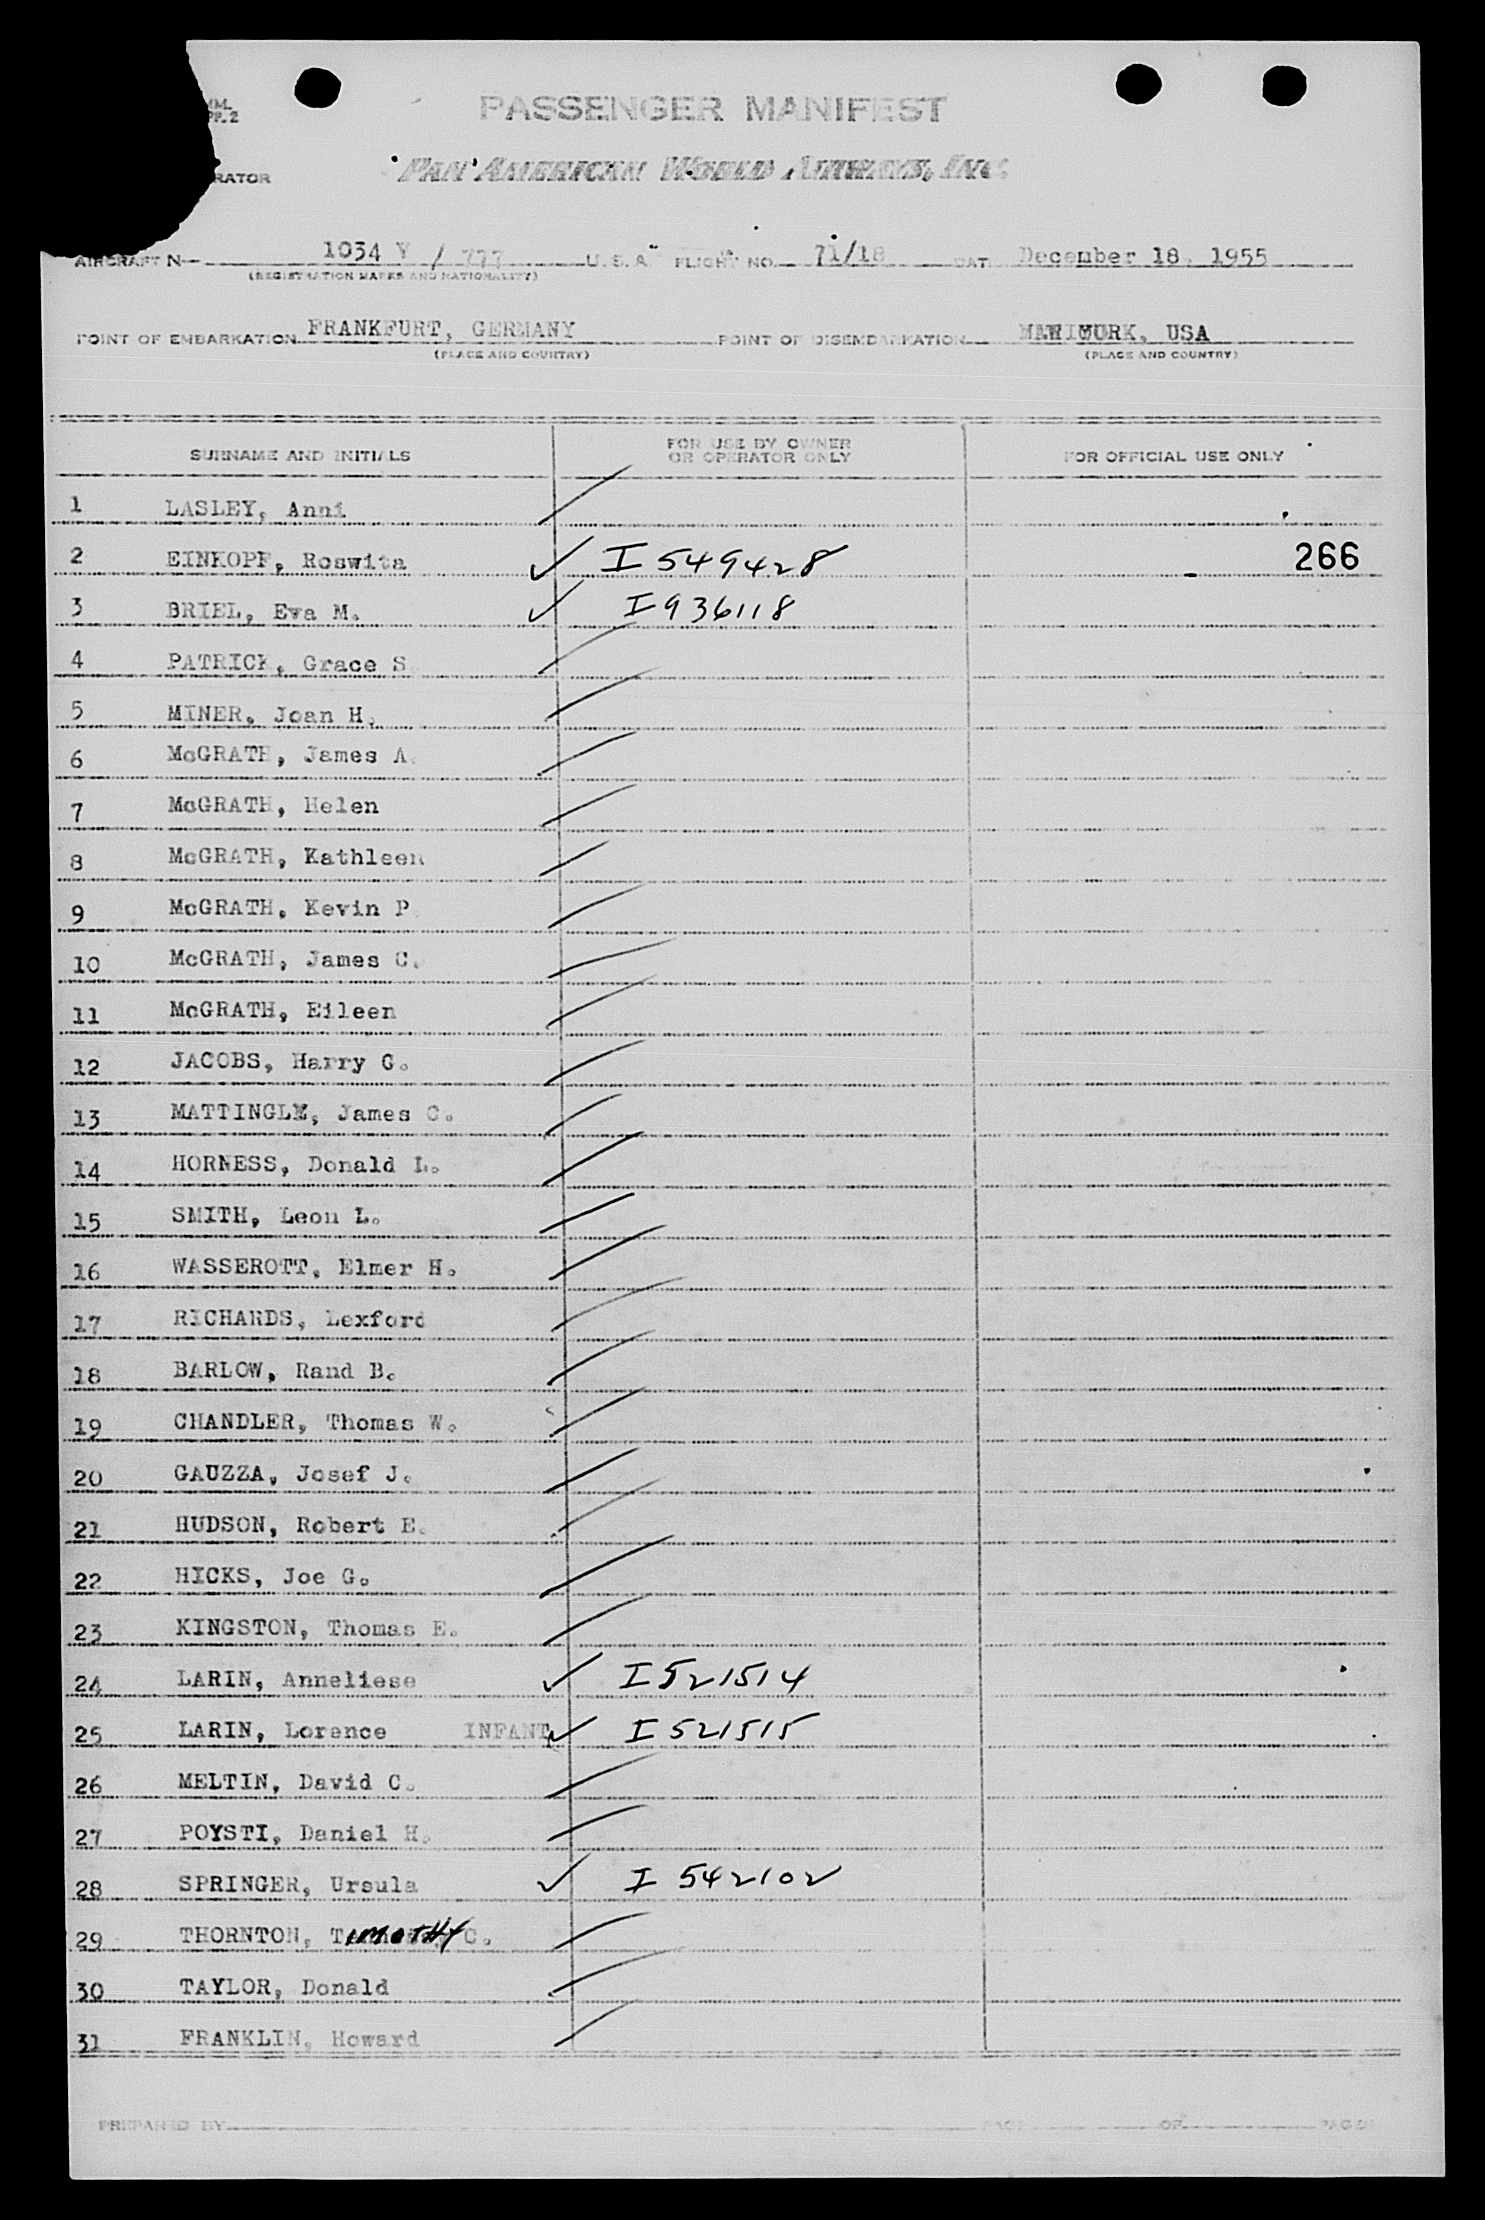 MM.
PP. 2
PASSENGER MANIFEST
RATOR
PAN AMERICAN WORLD AIRWAYS, INC.
AIRCRAFT N 1034 V / 777 U. S. A. FLIGHT NO. 71/18 DAT December 18, 1955
(REGISTRATION MARKS AND NATIONALITY)
POINT OF EMBARKATION FRANKFURT, GERMANY POINT OF DISEMBARKATION USA
(PLACE AND COUNTRY) (PLACE AND COUNTRY)
SURNAME AND INITIALS FOR USE BY OWNER OR OPERATOR ONLY FOR OFFICIAL USE ONLY
1 LASLEY, Anni
2 EINKOPF, Roswita ✓ I 549428 266
3 BRIEL, Eva M. ✓ I 936118
4 PATRICK, Grace S
5 MINER, Joan H.
6 McGRATH, James A.
7 McGRATH, Helen
8 McGRATH, Kathleen
9 McGRATH, Kevin P
10 McGRATH, James C.
11 McGRATH, Eileen
12 JACOBS, Harry G.
13 MATTINGLY, James C.
14 HORNESS, Donald L.
15 SMITH, Leon L.
16 WASSEROTT, Elmer H.
17 RICHARDS, Lexford
18 BARLOW, Rand B.
19 CHANDLER, Thomas W.
20 GAUZZA, Josef J.
21 HUDSON, Robert E.
22 HICKS, Joe G.
23 KINGSTON, Thomas E.
24 LARIN, Anneliese ✓ I 521514
25 LARIN, Lorence INFANT ✓ I 521515
26 MELTIN, David C.
27 POYSTI, Daniel H.
28 SPRINGER, Ursula ✓ I 542102
29 THORNTON, TIMOTHY C.
30 TAYLOR, Donald
31 FRANKLIN, Howard
PREPARED BY PAGE OF PAGES